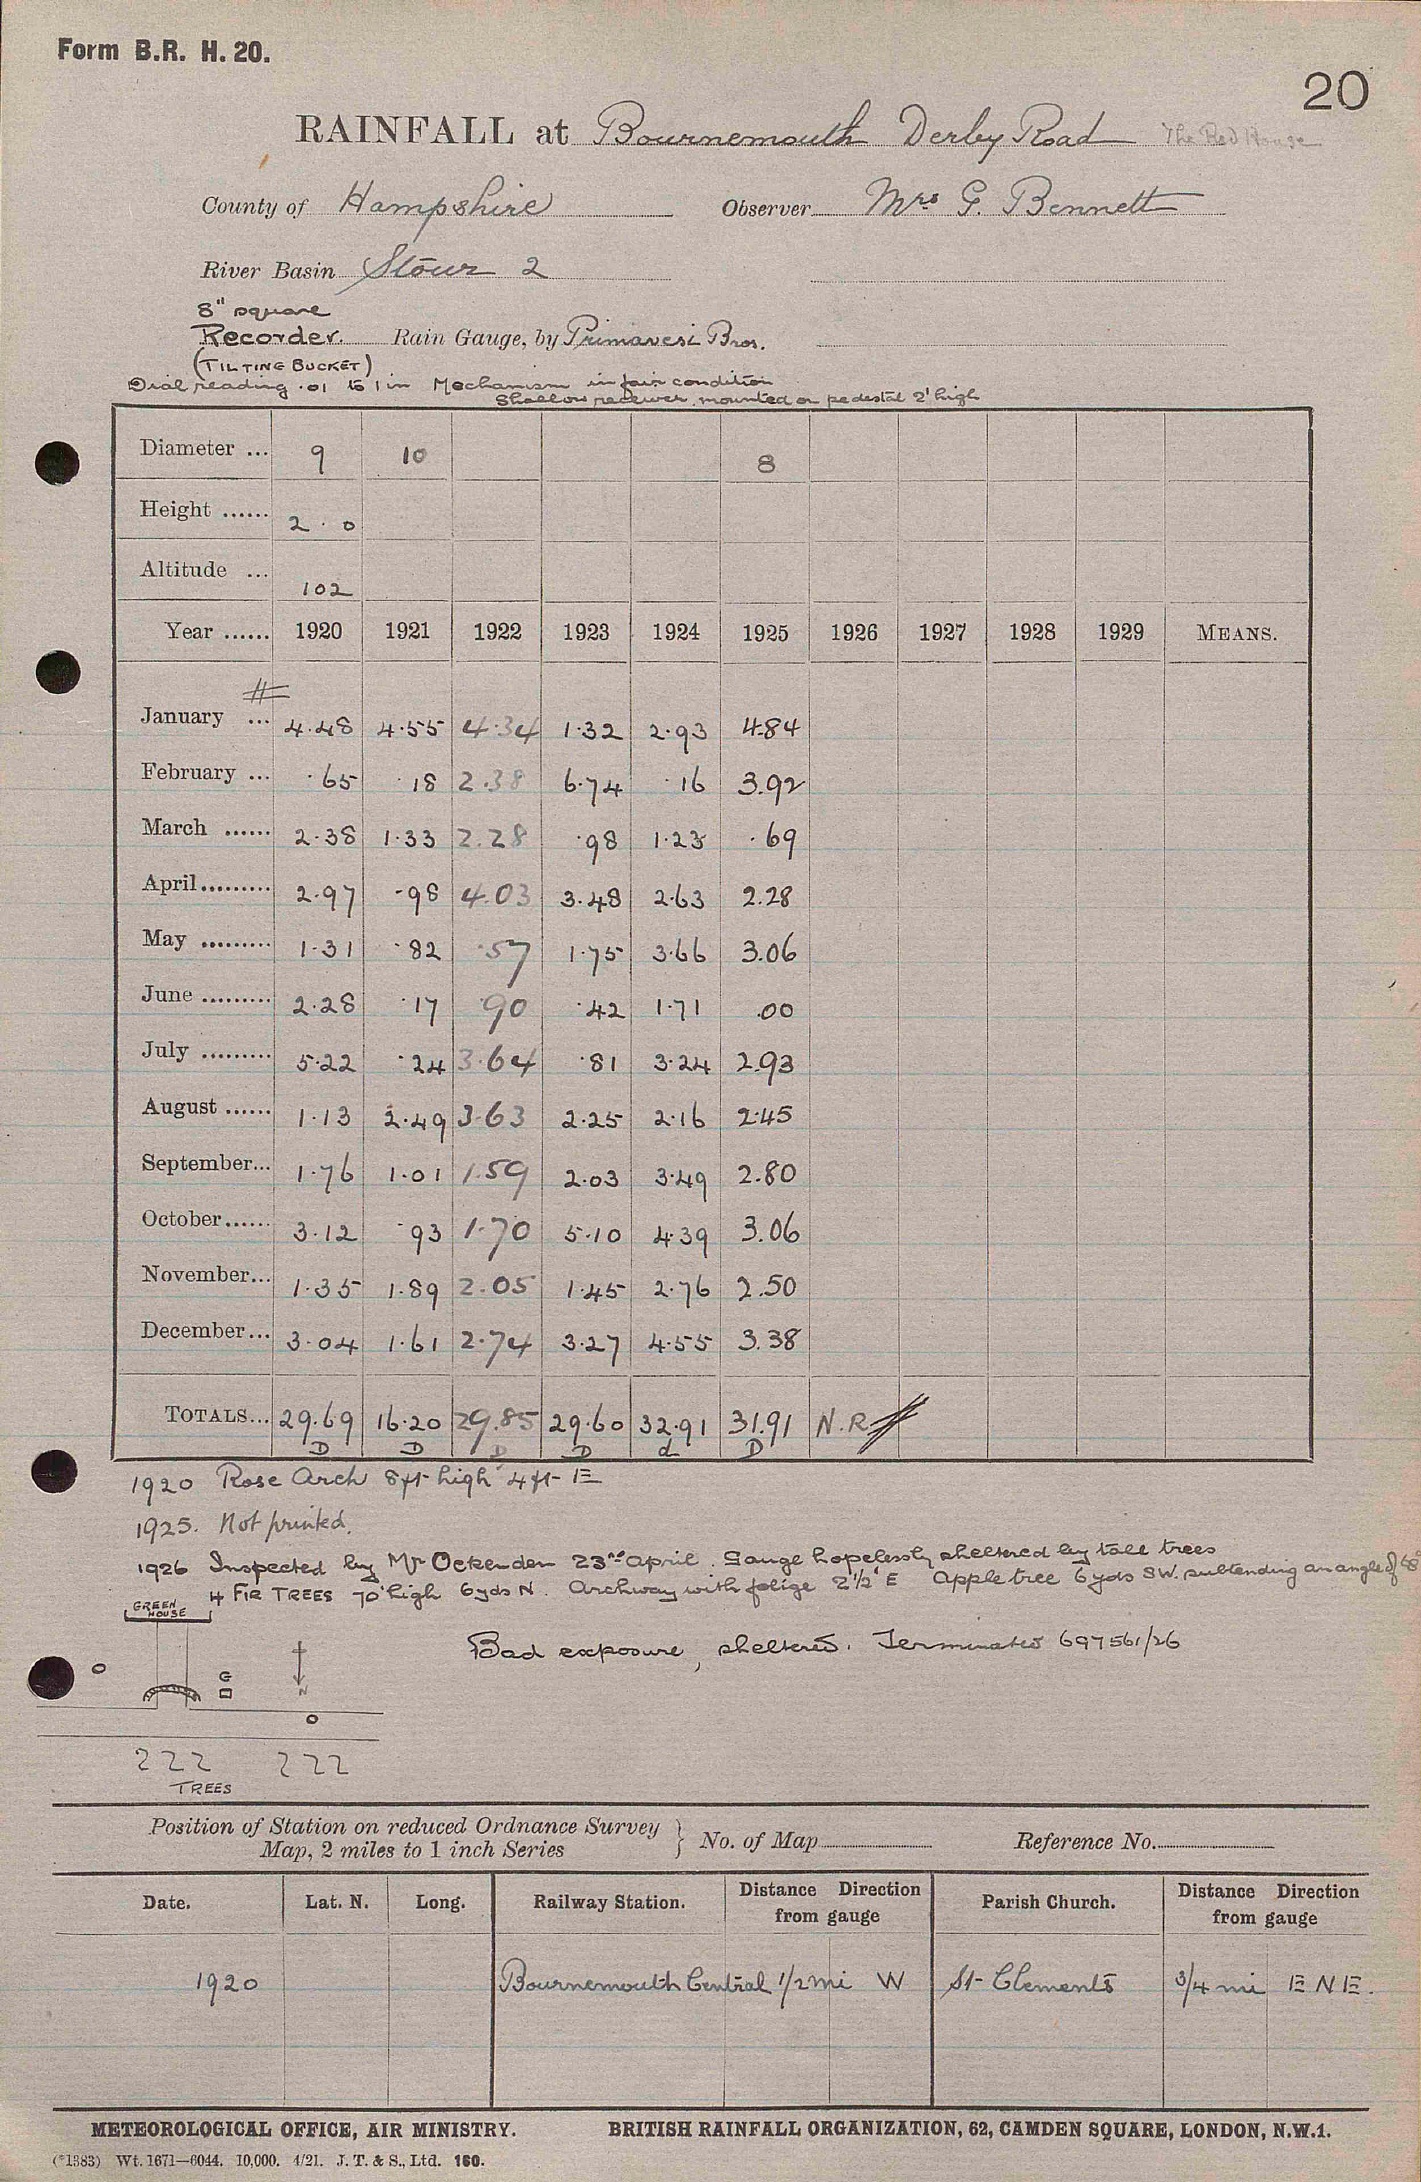 Form B.R. H. 20.
20
RAINFALL at Bournemouth Derby Road The Red House
County of Hampshire Observer Mrs G. Bennett
River Basin Stour 2
8" square
Recorder. Rain Gauge, by Primavesi Bros.
(TILTING BUCKET)
Dial reading .01 to 1 in Mechanism in fair condition
Shallow receiver mounted on pedestal 2' high
Diameter ... 9 10 8
Height ...... 2 . 0
Altitude ... 102
Year ...... 1920 1921 1922 1923 1924 1925 1926 1927 1928 1929 MEANS.
January ... 4.48 4.55 4.34 1.32 2.93 4.84
February ... .65 .18 2.38 6.74 .16 3.92
March ...... 2.38 1.33 2.28 .98 1.23 .69
April......... 2.97 .98 4.03 3.48 2.63 2.28
May ......... 1.31 .82 .57 1.75 3.66 3.06
June ......... 2.28 .17 .90 .42 1.71 .00
July ......... 5.22 .24 3.64 .81 3.24 2.93
August ...... 1.13 2.49 3.63 2.25 2.16 2.45
September... 1.76 1.01 1.59 2.03 3.49 2.80
October...... 3.12 .93 1.70 5.10 4.39 3.06
November... 1.35 1.89 2.05 1.45 2.76 2.50
December... 3.04 1.61 2.74 3.27 4.55 3.38
TOTALS... 29.69 16.20 29.85 29.60 32.91 31.91 N.R
D D D D d D
1920 Rose Arch 8ft high 4ft E
1925. Not printed.
1926 Inspected by Mr Ockenden 23rd April. Gauge hopelessly sheltered by tall trees
4 FIR TREES 70' high 6yds N. Archway with folige 2'½' E Apple tree 6yds SW. subtending an angle of 68°
GREEN
HOUSE
Bad exposure, sheltered. Terminated 697561/26
G
N
TREES
Position of Station on reduced Ordnance Survey
Map, 2 miles to 1 inch Series } No. of Map Reference No.
Date. Lat. N. Long. Railway Station. Distance Direction from gauge Parish Church. Distance Direction from gauge
1920 Bournemouth Central 1/2 mi W St Clements 3/4 mi E N E.
METEOROLOGICAL OFFICE, AIR MINISTRY. BRITISH RAINFALL ORGANIZATION, 62, CAMDEN SQUARE, LONDON, N.W.1.
(*1383) Wt. 1671—6044. 10,000. 4/21. J. T. & S., Ltd. 160.